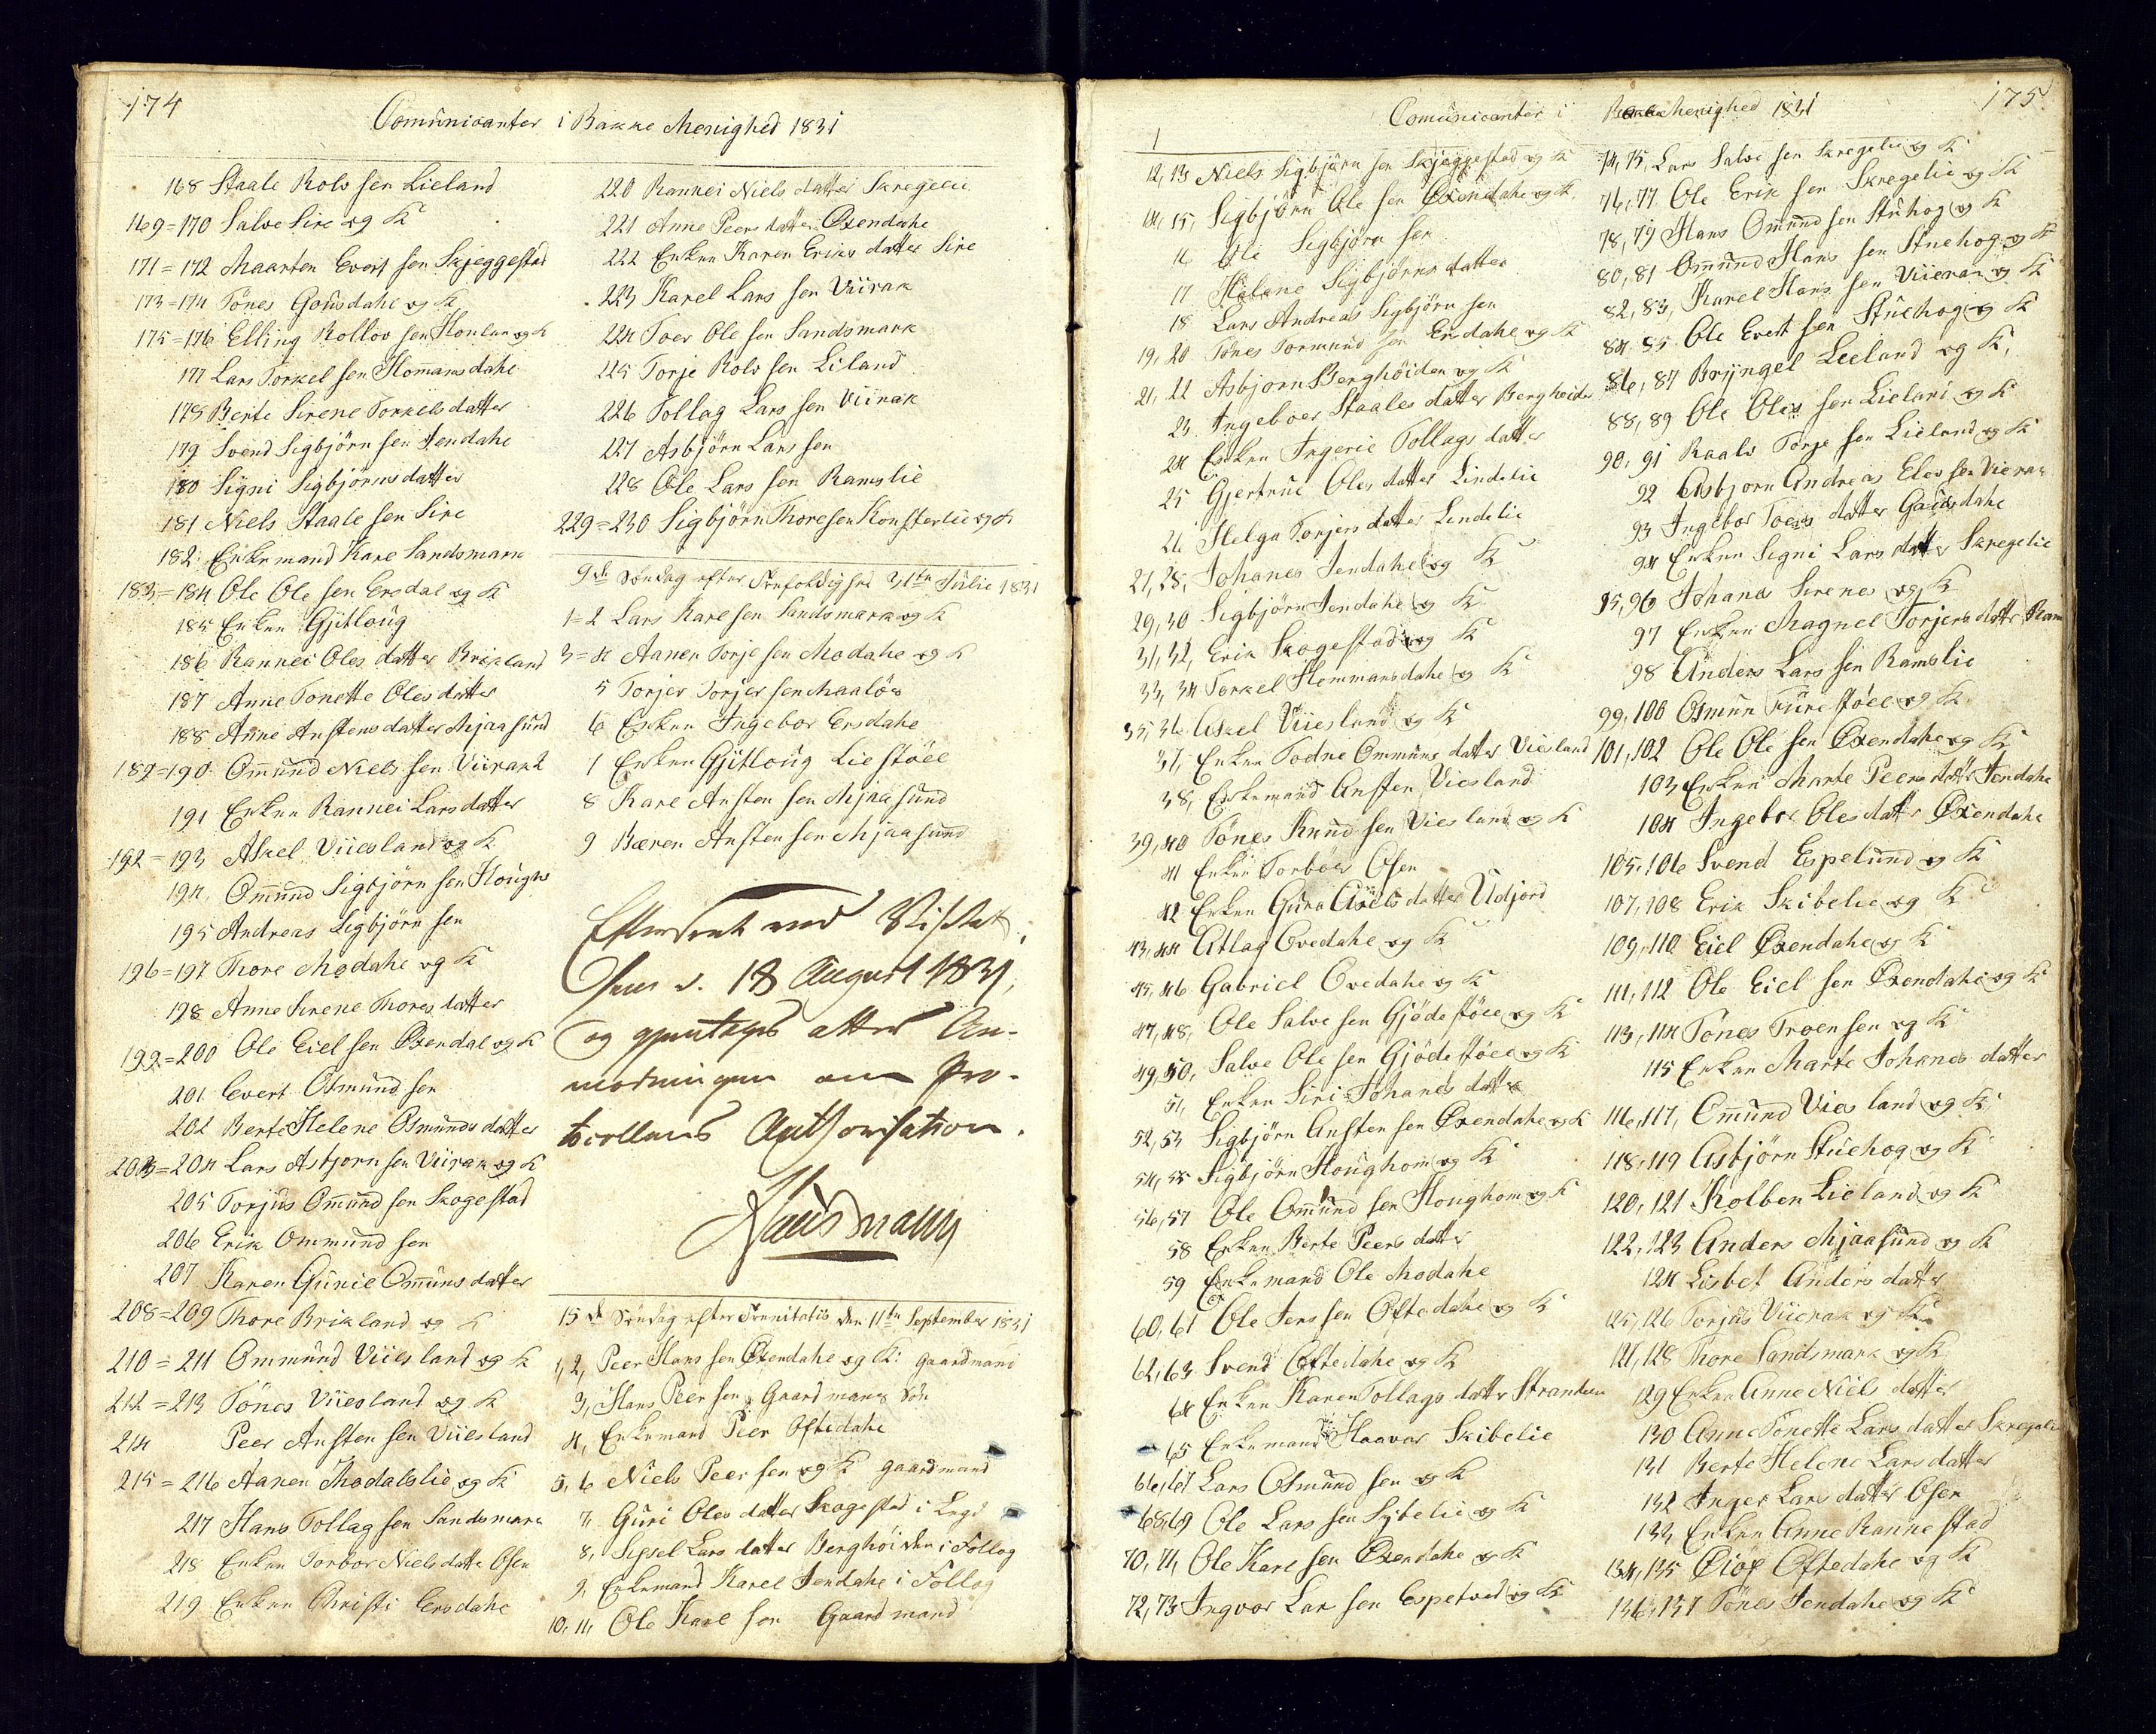 174
Comunicanter i Bakke Menighed 1831
168 Staale Rolv sen Lieland
169=170 Salve Sire og K
171=172 Maarten Evert sen Skjeggestad
173=174 Tönes Gousdahl og K
175=176 Elling Rollov sen Honlan og K
177 Lars Torkel sen Homansdahl
178 Berte Sirene Torkels datter
179 Svend Sigbjörn sen Jendahl
180 Signi Sigbjörns datter
181 Niels Staale sen Sire
182 Enkemand Kare Sandsmark
183=184 Ole Ole sen Ersdal og K
185 Enken Gjitloug
186 Rannei Oles datter Brikland
187 Anne Tonette Oles datter
188 Anne Anstens datter Mjaasund
189=190 Omund Niels sen Viirak 2
191 Enken Rannei Lars datter
192=193 Askel Viiesland og K
194 Omund Sigbjörn sen Houghm
195 Andreas Sigbjörn sen
196=197 Thore Modahl og K
198 Anne Sirene Thores datter
199=200 Ole Eiel sen Öxendal og K
201 Evert Osmund sen
202 Berte Helene Osmunds datter
203=204 Lars Asbjorn sen Viirak og K
205 Torjus Omund sen Skogestad
206 Erik Ommund sen
207 Karen Gurie Omuns datter
208=209 Thore Brikland og K
210=211 Ommund Viiesland og K
212=213 Tönes Viiesland og K
214 Peer Ansten sen Viiesland
215=216 Aanen Modalslie og K
217 Hans Tollag sen Sandsmark
218 Enken Torbor Niels datte Osen
219 Enken Christi Ersdahl
220 Rannei Niels datter Skregelie
221 Anne Peers datter Öxendahl
222 Enken Karen Eriks datter Sire
223 Karel Lars sen Viirak
224 Toer Ole sen Sandsmark
225 Torje Rolv sen Liland
226 Tollag Lars sen Viirak
227 Asbjörn Lars sen
228 Ole Lars sen Ramslie
229=230 Sigbjörn Thore sen Konsterlie og K
9de Söndag efter Trefoldighed 31te Julie 1831
1=2 Lars Karel sen Sandsmark og K
3=4 Aanen Torje sen Modahl og K
5 Torjer Torjer sen Maalös
6 Enken Ingebor Ersdahl
7 Enken Gjitloug Liestöel
8 Karl Ansten sen Mjaasund
9 Bæren Ansten sen Mjaasund
Efterseet ved Visitats
d. 18 August 1831,
og gjentages atter An-
modningen om Pro-
tocollens Authorisation.
15de Söndag efter Trinitatis den 11te September 1831
1,2, Peer Hans sen Öxendahl og K: Gaardmand
3, Hans Peer sen Gaardmans Sön
4, Enkemand Peer Oftedahl
5,6 Niels Peer sen og K gaardmand
7, Guri Oles datter Skogestad i Legd
8, Sissel Lars datter Berghöiden i Follog
9, Enkemand Karel Jendahl i Follog
10, 11, Ole Karl sen Gaardmand
175
Comunicanter i Bakke Menighed 1831
12,13 Niels Sigbjörn sen Skjeggestad og K
14,15, Sigbjörn Ole sen Öxendahl og K
16 Ole Sigbjörn sen
17 Helene Sigbjörns datter
18 Lars Andreas Sigbjörn sen
19,20 Tönes Tormund sen Ersdahl og K
21,22 Asbjorn Berghöiden og K
23 Ingeboer Staales datter Bergheide
24 Enken Ingerie Tollags datter
25 Gjertrue Oles datter Lindelie
26 Helga Torjers datter Lindelie
27,28, Johanes Jendahl og K
29,30 Sigbjörn Jendahl og K
31,32, Erik Skogestad og K
33,34 Torkel Hommansdahl og K
35,36 Askel Viiesland og K
37, Enken Todne Ommuns datter Viesland
38, Enkemand Ansten Viesland
39,40 Tönes Knud sen Viesland og K
41 Enken Torbör Osen
42 Enken Guro Axels datter Udjord
43,44 Atlag Ovedahl og K
45,46 Gabriel Ovedahl og K
47,48, Ole Salve sen Gjödestöel og K
49,50, Salve Ole sen Gjödestöel og K
51, Enken Siri Johanes datter
52,53 Sigbjörn Ansten sen Öxendahl og K
54,55 Sigbjörn Houghom og K
56,57 Ole Omund sen Houghom og K
58 Enken Berte Peers datter
59 Enkemand Ole Modahl
60,61 Ole Jens sen Oftedahl og K
62,63 Svend Oftedahl og K
64 Enken Karen Tollags datter Stranden
65 Enkemand Haavar Skibelie
66,67 Lars Osmund sen og K
68,69 Ole Lars sen Skibelie og K
70,71, Ole Karl sen Öxendahl og K
72,73 Ingvor Lar sen Espetved og K
74,75, Lars Salve sen Skregelie og K
76,77 Ole Erik sen Skregelie og K
78,79 Hans Omund sen Stuhog og K
80,81 Omund Hans sen Stuehog og K
82,83, Karel Hans sen Viierak og K
84,85 Ole Evert sen Stuehog og K
86,87 Bryngel Leeland og K,
88,89 Ole Oles sen Lieland og K
90,91 Raalv Torje sen Lieland og K
92 Asbjorn Andreas Elev sen Vierak
93 Ingebor Toers datter Gausdahl
94 Enken Segni Lars datter Skregelie
95,96 Johanes Sirenes og K
97 Enken Magnel Torjers datter Ram
98 Anders Lars sen Ramslie
99,100 Osmun Furestöel og K
101,102 Ole Ole sen Öxendahl og K
103 Enken Marte Peers datter Jendahl
104 Ingebor Oles datter Öxendahl
105,106 Svend Espelund og K
107,108 Erik Skibelie og K
109,110 Eiel Öxendahl og K
111,112 Ole Eiel sen Öxendahl og K
113,114 Tönes Troen sen og K
115 Enken Marte Johanes datter
116,117, Omund Viesland og K
118,119 Asbjörn Stuehog og K
120,121 Kolben Lieland og K
122,123 Anders Mjaasund og K
124 Lisbet Anders datter
125,126 Torjus Viierak og K
127,128 Thore Sandsmark og K
129 Enken Anne Niels datter
130 Anne Tonette Lars datter Skregelie
131 Berte Helene Lars datter
132 Inger Lars datter Osen
133, Enken Anne Rannestad
134,135 Oftedahl og K
136,137 Tönes Jendahl og K